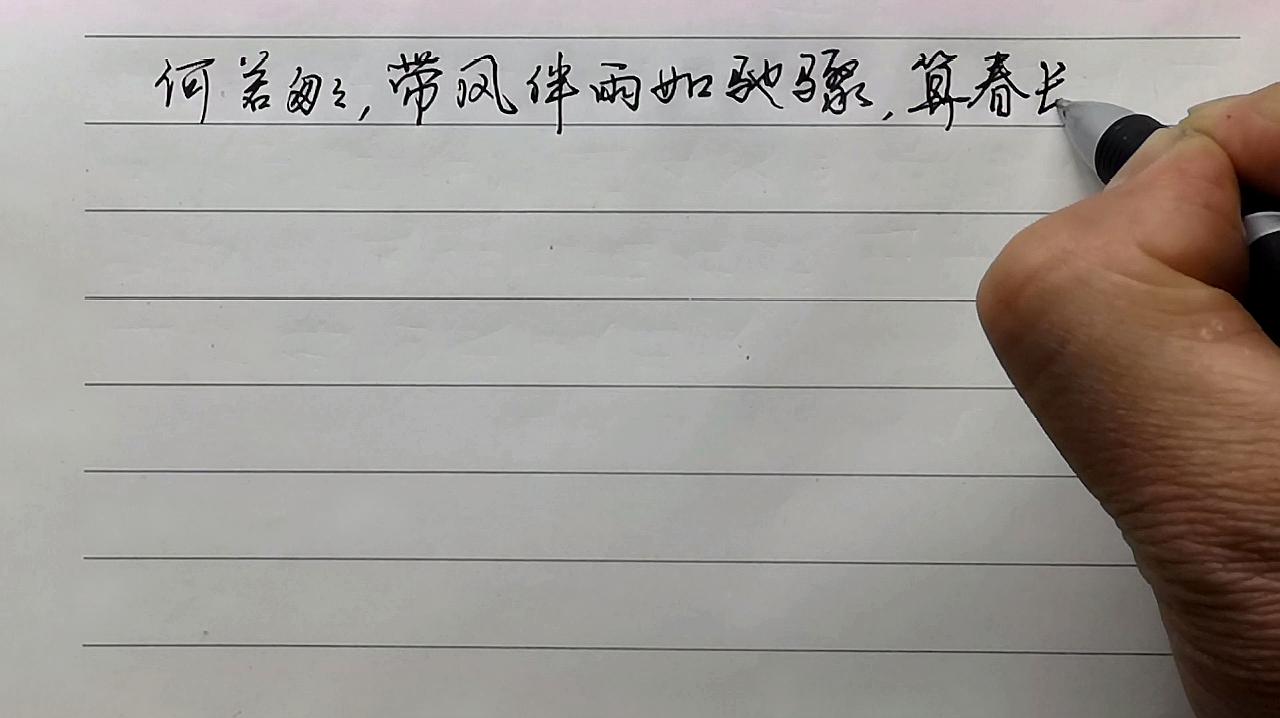 何苦匆々,带风伴雨如驰骤,算春长